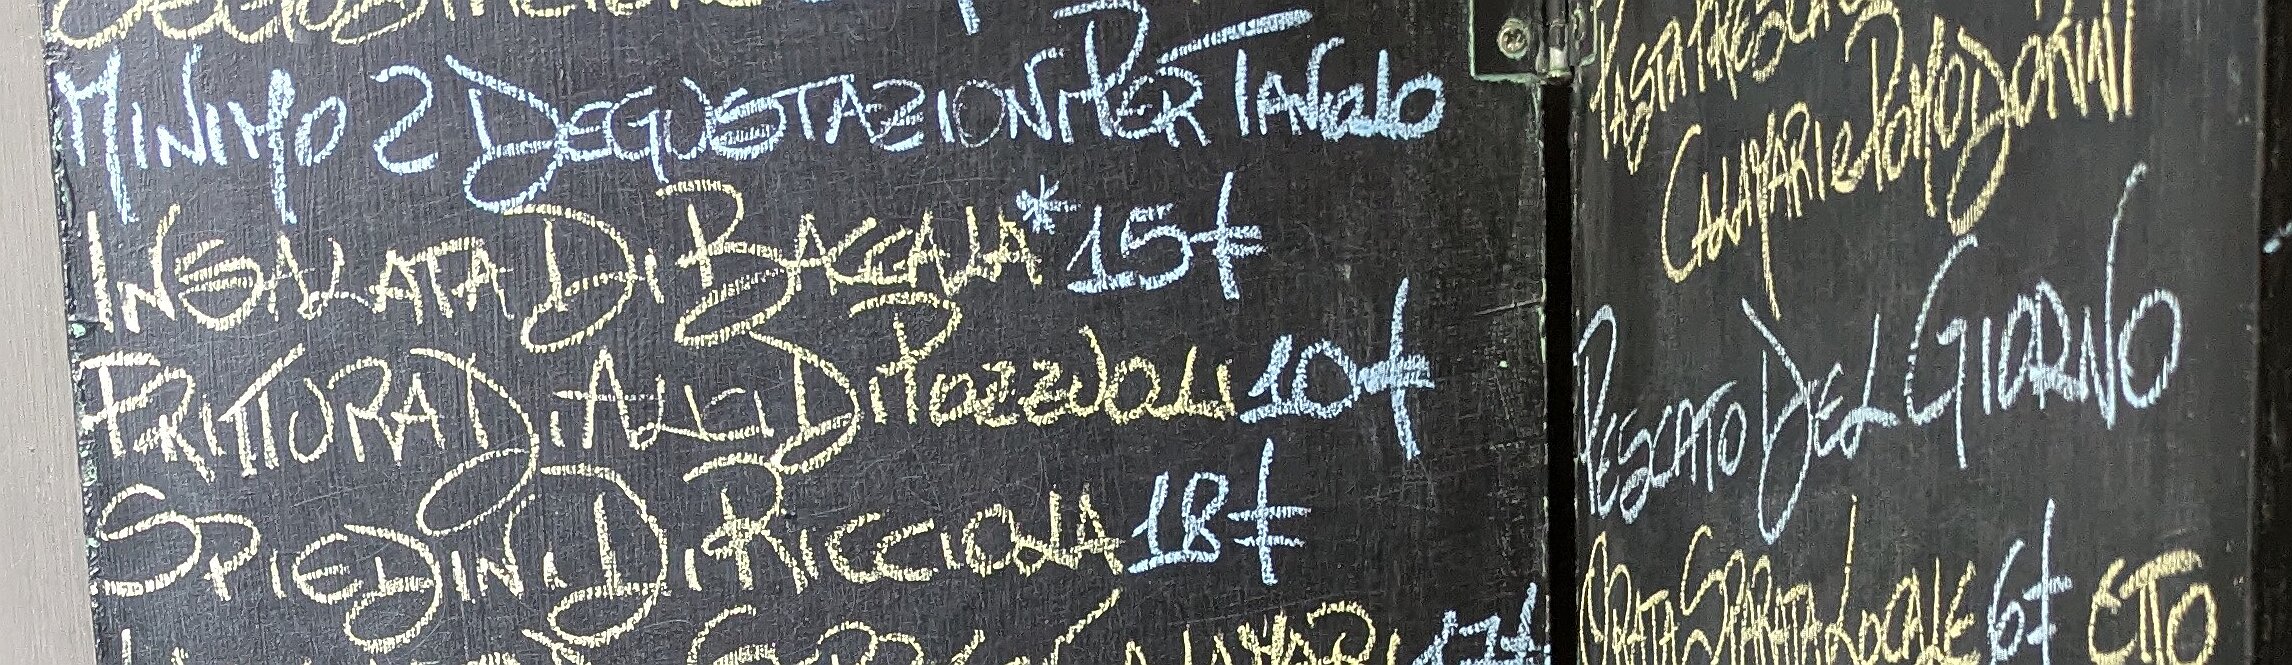 DEGUSTAZIONE
MINIMO 2 DEGUSTAZIONI PER TAVOLO
INSALATA DI BACCALA* 15€
FRITTURA DI ALICI DI POZZUOLI 10€
SPIEDINI DI RICCIOLA 18€
CALAMARI 17€
PASTA FRESCA
CALAMARI e POMODORINI
PESCATO DEL GIORNO
ORATA SPARATA LOCALE 6€ ETTO